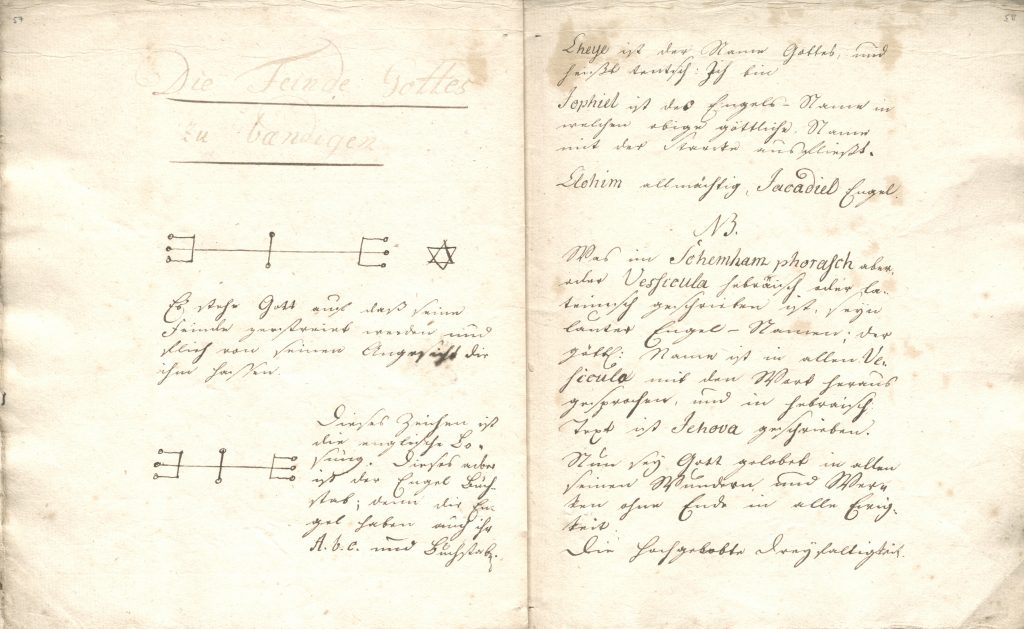 57
Die Feinde Gottes
zu baendigen
Es stehe Gott auf daß seine
Feinde zerstreut werden und
flich von seinen Angesicht die
ihn hassen.
Dieses Zeichen ist
die englische Lo-
sung. Dieses aber
ist der Engel Buch-
stab; denn die En-
gel haben auch ihr
A. b. c. und Buchstab.
58
Eheye ist der Name Gottes, und
heißt teutsch: Ich bin
Jophiel ist des Engels-Name in
welchen obige göttliche Name
mit der Starcke ausfließt.
Elohim allmächtig, Jacadiel Engel.
NB.
Was im Schemham phorasch aber
oder Vessicula hebräisch oder la-
teinisch geschrieben ist, seyn
lauter Engel-Namen; der
göttl: Name ist in allen Ve-
sicula mit den Wort heraus
gesprochen, und in hebräisch
Text ist Jehova geschrieben.
Nun sey Gott gelobet in allen
seinen Wundern und Wer-
ken ohne Ende in alle Ewig-
keit
Die Hochgelobte Dreyfaltigkeit.